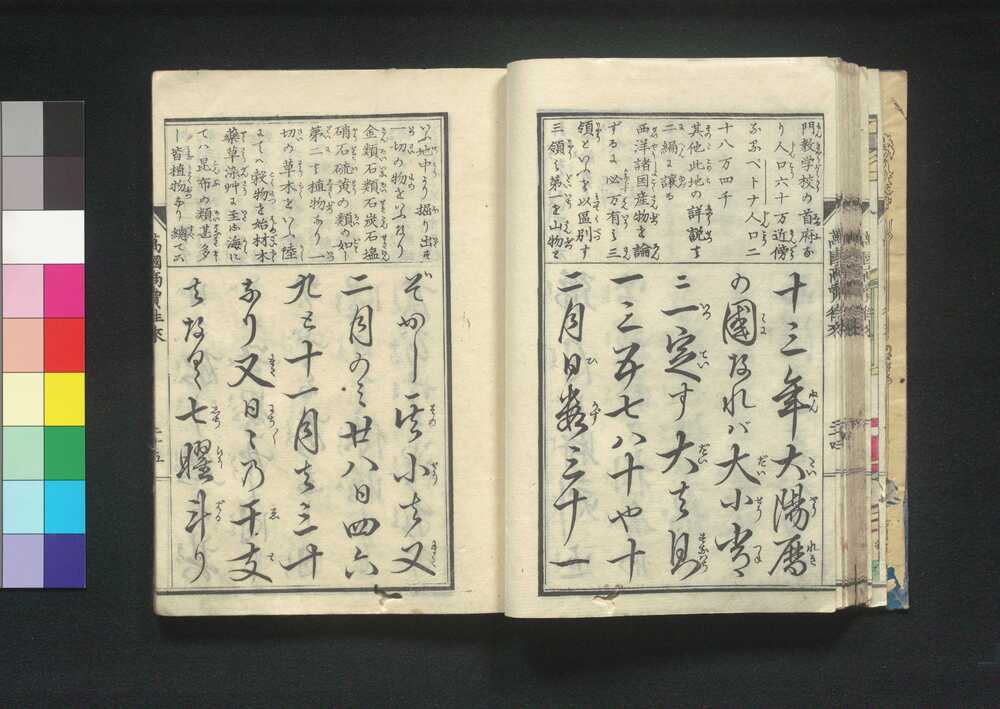 門教学校の首府な
り人口六十万近傍
なるペトナ人口二
十八万四千
其他此地の詳説ハ
二編に譲る
西洋諸国産物を論
ずるに必万有を三
領といふを以區別す
三領ハ第一を山物と
十三年大陽暦
の國なれバ大小常に
三一定す大ハ則
一三五七八十や十
二月日数三十一
いふ地中より掘り出す
一切の物をいふなり
金類石類石炭石塩
硝石硫黄の類の如し
第二ハ植物なり一
切の草木をいふ陸
にてハ穀物を始材木
薬草染艸に至る海に
てハ昆布の類甚多
し皆植物なり總てこ
ぞかし其小ハ又
二月のミ廿八日四六
九と十一月ハ三十
なり又日々乃干支
ハなく七曜斗り
萬國商賣往來
二十五